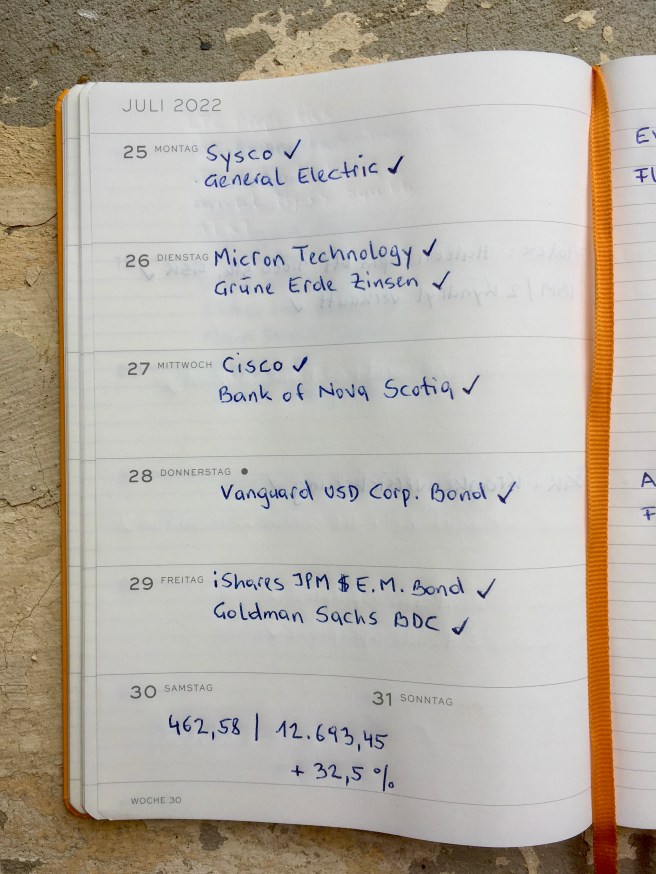 JULI 2022
25 MONTAG Sysco ✓
General Electric ✓
26 DIENSTAG Micron Technology ✓
Grüne Erde Zinsen ✓
27 MITTWOCH Cisco ✓
Bank of Nova Scotia ✓
28 DONNERSTAG ●
Vanguard USD Corp. Bond ✓
29 FREITAG iShares JPM $ E.M. Bond ✓
Goldman Sachs BDC ✓
30 SAMSTAG
31 SONNTAG
462,58 | 12.693,45
+ 32,5 %
WOCHE 30